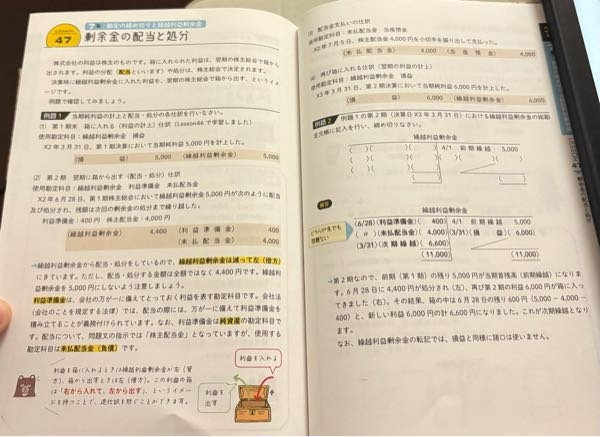 Lesson 47
7章 勘定の締め切りと繰越利益剰余金
剰余金の配当と処分
株式会社の利益は株主のものです。箱に入れられた利益は、翌期の株主総会で箱から
出されます。利益の分配（配当といいます）や処分は、株主総会で決定されます。
決算時に繰越利益剰余金に入れた利益を、翌期の株主総会で箱から出す、というイメ
ージです。
例題で確認してみましょう。
例題1 当期純利益の計上と配当・処分の各仕訳を行いなさい。
(1) 第1期末 箱に入れる（利益の計上）仕訳（Lesson46で学習しました）
使用勘定科目：繰越利益剰余金 損益
X2年3月31日、第1期決算において当期純利益5,000円を計上した。
(損 益) 5,000 (繰越利益剰余金) 5,000
(2) 第2期 翌期に箱から出す（配当・処分）仕訳
使用勘定科目：繰越利益剰余金 利益準備金 未払配当金
X2年6月28日、第1期株主総会において繰越利益剰余金5,000円が次のように配当
及び処分され、残額は次回の剰余金の処分まで繰り越した。
利益準備金：400円 株主配当金：4,000円
(繰越利益剰余金) 4,400 (利益準備金) 400
(未払配当金) 4,000
→繰越利益剰余金から配当・処分をしているので、繰越利益剰余金は減って左（借方）
にきています。ただし、配当・処分する金額は全額ではなく4,400円です。繰越利
益剰余金を5,000円にしないよう注意しましょう。
利益準備金は、会社の万が一に備えてとっておく利益を表す勘定科目です。会社法
（会社のことを規定する法律）では、配当の際には、万が一に備えて利益準備金を
積み立てることが義務付けられています。なお、利益準備金は純資産の勘定科目で
す。配当について、問題文の指示では「株主配当金」となっていますが、使用する
勘定科目は未払配当金（負債）です。
利益を箱に入れるときは繰越利益剰余金が右（貸
方）、箱から出すときは左（借方）。この利益の箱
は「右から入れて、左から出す」、というイメー
ジを持つことで、逆仕訳を防ぐことができます。
利益を入れる
利益を出す
(3) 配当金支払いの仕訳
使用勘定科目：未払配当金 当座預金
X2年7月5日、株主配当金4,000円を小切手を振り出して支払った。
(未払配当金) 4,000 (当座預金) 4,000
(4) 再び箱に入れる仕訳（翌期の利益の計上）
使用勘定科目：繰越利益剰余金 損益
X3年3月31日、第2期決算において当期純利益6,000円を計上した。
(損 益) 6,000 (繰越利益剰余金) 6,000
例題2 例題1の第2期（決算日X3年3月31日）における繰越利益剰余金の総勘
定元帳に記入を行い、締め切りなさい。
繰越利益剰余金
( )( )( ) 4/1 前期繰越 5,000
( )( )( ) ( )( )( )
( )( )( )
( ) ( )
解答
繰越利益剰余金
どちらが先でも問題ない
(6/28)(利益準備金)( 400) 4/1 前期繰越 5,000
( 〃 )(未払配当金)( 4,000) (3/31)(損 益)( 6,000)
(3/31)(次期繰越)( 6,600)
(11,000) (11,000)
→第2期なので、前期（第1期）の残り5,000円が当期首残高（前期繰越）になりま
す。6月28日に4,400円が処分され（左）、再び第2期の利益6,000円が箱に入っ
てきました（右）。その結果、箱の中は6月28日の残り600円（5,000－4,000－
400）と、新しい利益6,000円の計6,600円になりました。これが次期繰越となり
ます。
なお、繰越利益剰余金の転記では、損益と同様に諸口は使いません。